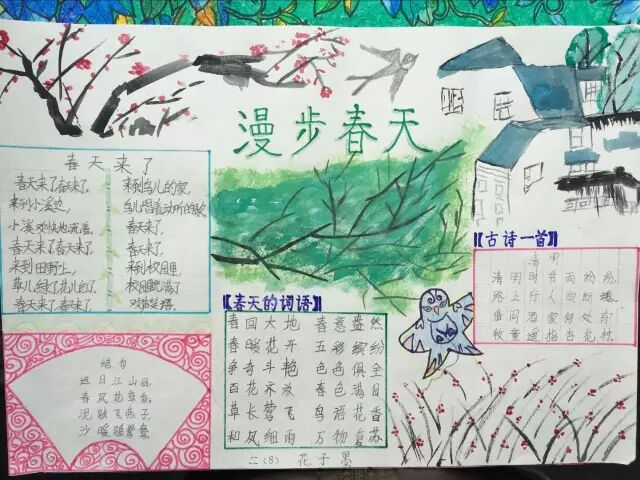 漫步春天
春天来了
春天来了春天来了,
来到小溪边,
小溪欢快地流淌。
春天来了春天来了,
来到田野上,
草儿绿了花儿红了。
春天来了春天来了,
来到鸟儿的家,
鸟儿唱着动听的歌
春天来了,
春天来了,
来到校园里,
校园充满了
欢声笑语。
绝句
迟日江山丽,
春风花草香。
泥融飞燕子,
沙暖睡鸳鸯。
【春天的词语】
春回大地 春意盎然
春暖花开 五彩缤纷
争奇斗艳 色色俱全
百花齐放 春色满目
草长莺飞 鸟语花香
和风细雨 万物复苏
二(8) 花子墨
【古诗一首】
清明
清明时节雨纷纷,
路上行人欲断魂。
借问酒家何处有
牧童遥指杏花村。